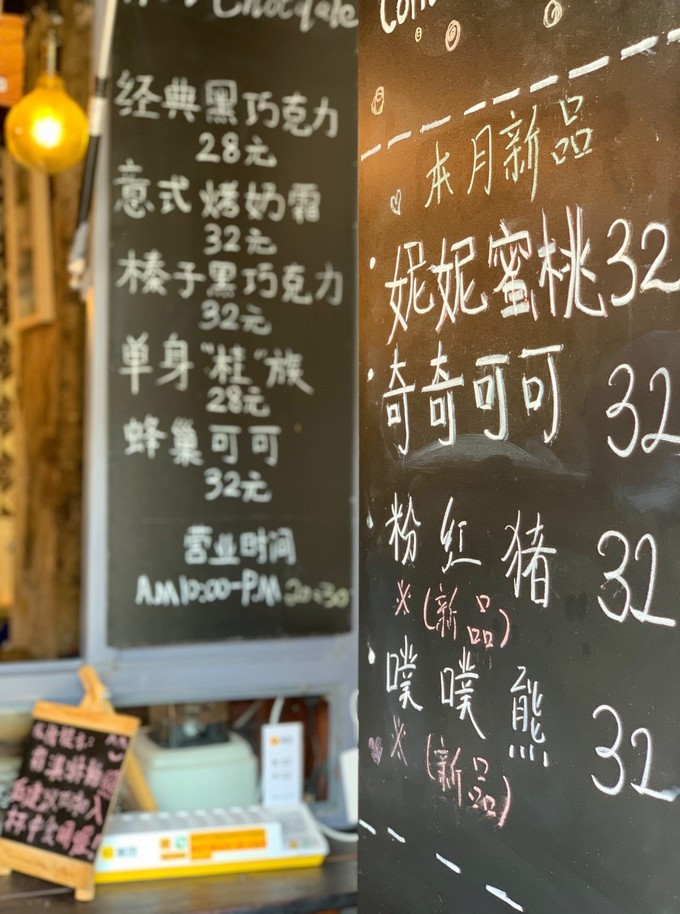 Chocolate
经典黑巧克力
28元
意式烤奶霜
32元
榛子黑巧克力
32元
单身"桂"族
28元
蜂巢可可
32元
营业时间
AM10:00-PM20:30
本月新品
妮妮蜜桃32
奇奇可可 32
粉红猪 32
※(新品)
噗噗熊 32
※(新品)